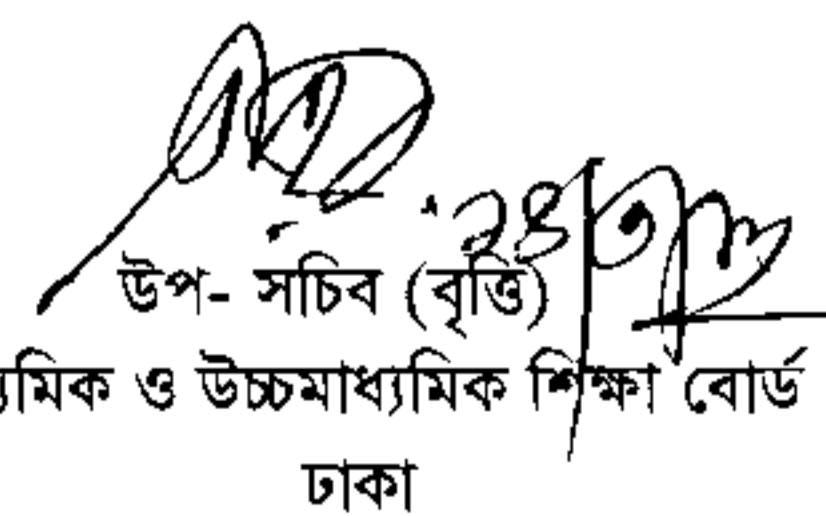 উপ- সচিব (বৃত্তি)
্যমিক ও উচ্চমাধ্যমিক শিক্ষা বোর্ড
ঢাকা